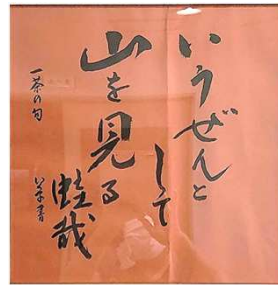 いうぜんと
して
山を見る
蛙哉
一茶の句